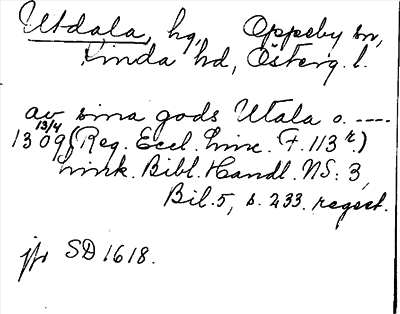 Utdala, hg, Oppeby sn,
Kinda hd, Österg. l.
av sina gods Utala o. ----
13/4
1309 (Reg. Eccl. Linc. F. 113 r.)
Link. Bibl. Handl. NS: 3,
Bil. 5, s. 233. regest.
jfr SD 1618.